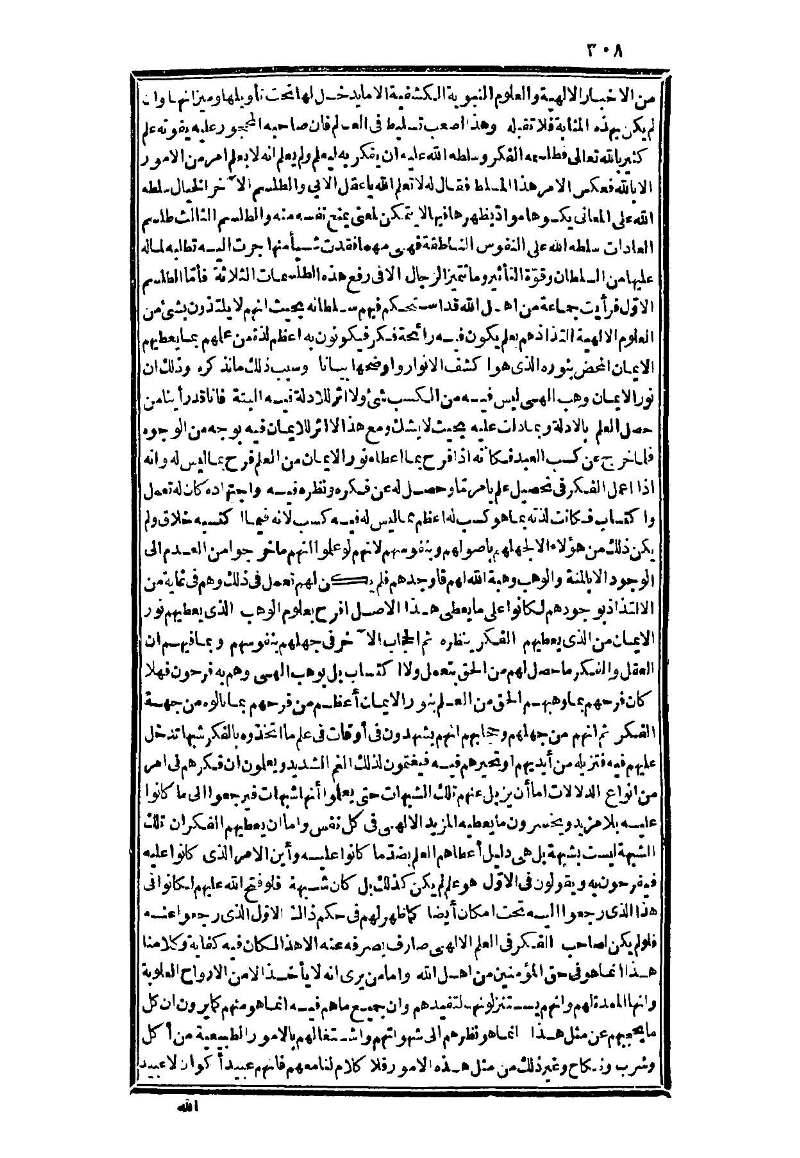 ٣٠٨
من الاخبار الالهية والعلوم النبوية الكشفية الا ما يدخل لها تحت تأويلها وميزانها وان
لم يكن بهذه المثابة فلا تقبله وهذا أصعب تسليط فى العالم فان صاحبه المحجور عليه يفوته علم
كثير بالله تعالى فطلسمه الفكر وسلطه الله عليه أن يفكر به ليعلم ولم يعلم انه لا يعلم امر من الامور
الا بالله فعكس الامر هذا المسلط فقال له لا تعلم الله يا عقل الا بى والطلسم الآخر الخيال سلطه
الله على المعانى يكسوها مواد يظهرها فيها لا يتمكن لمعنى يمنع نفسه منه والطلسم الثالث طلسم
العادات سلطه الله على النفوس الناطقة فهى مهما فقدت شيأ منها جرت اليه تطلبه لما له
عليها من السلطان وقوّة التأثير وما تتميز الرجال الا فى رفع هذه الطلسمات الثلاثة فأمّا الطلسم
الاول فرأيت جماعة من اهل الله قد استحكم فيهم سلطانه بحيث انهم لا يلتذون بشئ من
العلوم الالهية التذاذهم بعلم يكون فيه رائحة فكر فيكونون به اعظم لذة من علمهم بما يعطيهم
الايمان المحض بنوره الذى هو اكشف الانوار واوضحها بيانا وسبب ذلك ما نذكره وذلك ان
نور الايمان وهب الهى ليس فيه من الكسب شئ ولا اثر للادلة فيه البتة فانا قد رأينا من
حصل العلم بالادلة وبما دلت عليه بحيث لا يشك ومع هذا لا اثر للايمان فيه بوجه من الوجوه
فلما خرج عن كسب العبد فكأنه اذا فرح بما اعطاه نور الايمان من العلم فرح بما ليس له وانه
اذا اعمل الفكر فى تحصيل علم بامر مّا وحصل له عن فكره ونظره فيه واجتهاده كان له تعمل
واكتساب فكانت لذته بما هو كسب له اعظم مما ليس له فيه كسب لانه فيما اكتسبه خلاق ولم
يكن ذلك من هؤلاء الا لجهلهم باصولهم وبنفوسهم لانهم لو علموا انهم ما خرجوا من العدم الى
الوجود الا بالمنة والوهب وهبة الله لهم فاوجدهم فلم يكن لهم تعمل فى ذلك وهم فى غاية من
الالتذاذ بوجودهم لكانوا على ما يعطى هذا الاصل افرح بعلوم الوهب الذى يعطيهم نور
الايمان من الذى يعطيهم الفكر بنظره ثم الحجاب الآخر فى جهلهم بنفوسهم وبما فيهم ان
العقل والفكر ما حصل لهم من الحق بتعمل ولا اكتساب بل بوهب الهى وهم به فرحون فهلا
كان فرحهم بما وهبهم الحق من العلم بنور الايمان أعظم من فرحهم بما نالوه من جهة
الفكر ثم انهم من جهلهم وحجابهم انهم يشهدون فى أوقات فى علم ما اتخذوه بالفكر شبها تدخل
عليهم فيه فتزيله من أيديهم او تحيرهم فيه فيغتمون لذلك الغم الشديد ويعلمون ان فكرهم فى امر
من انواع الدلالات اما أن يزيل عنهم تلك الشبهات حتى يعلموا أنها شبهات فيرجعوا الى ما كانوا
عليه بلا مزيد ويخسرون ما يعطيه المزيد الالهى فى كل نفس واما ان يعطيهم الفكر ان تلك
الشبهة ليست بشبهة بل هى دليل أعطاهم العلم بضد ما كانوا عليه وأين الامر الذى كانوا عليه
فيفرحون به ويقولون فى الاول هو علم لم يكن كذلك بل كان شبهة فلو فتح الله عليهم لكانوا فى
هذا الذى رجعوا اليه تحت امكان أيضا كما ظهر لهم فى حكم ذاك الاول الذى رجعوا عنه
فلو لم يكن لصاحب الفكر فى العلم الالهى صارف يصرفه عنه الا هذا لكان فيه كفاية وكلامنا
هذا انما هو فى حق المؤمنين من اهل الله واما من يرى انه لا يأخذ الا من الارواح العلوية
وانها الممدة لهم وانهم يستنزلونها لتفيدهم وان جميع ما هم فيه انما هو منهم كما يرون ان كل
ما يحجبهم عن مثل هذا انما هو نظرهم الى شهواتهم واشتغالهم بالامور الطبيعية من أكل
وشرب ونكاح وغير ذلك من مثل هذه الامور فلا كلام لنا معهم فانهم عبيد أكوان لا عبيد
الله